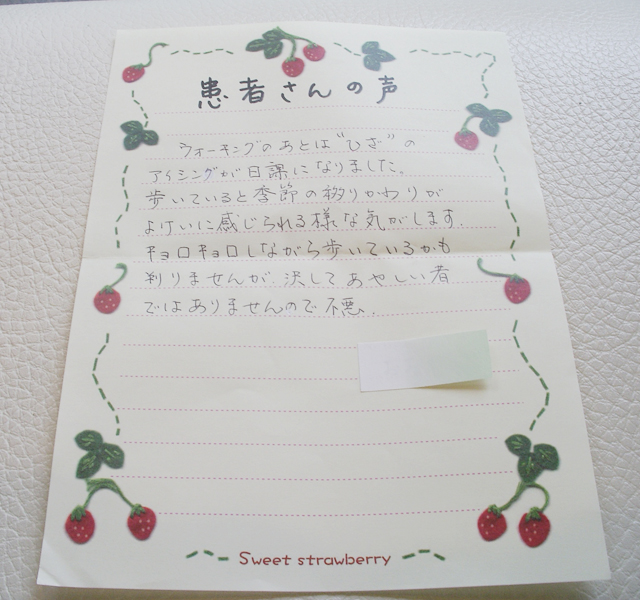 患者さんの声
ウォーキングのあとは“ひざ”の
アイシングが日課になりました。
歩いていると季節の移りかわりが
よけいに感じられる様な気がします.
キョロキョロしながら歩いているかも
判りませんが、決してあやしい者
ではありませんので不悪.
Sweet strawberry